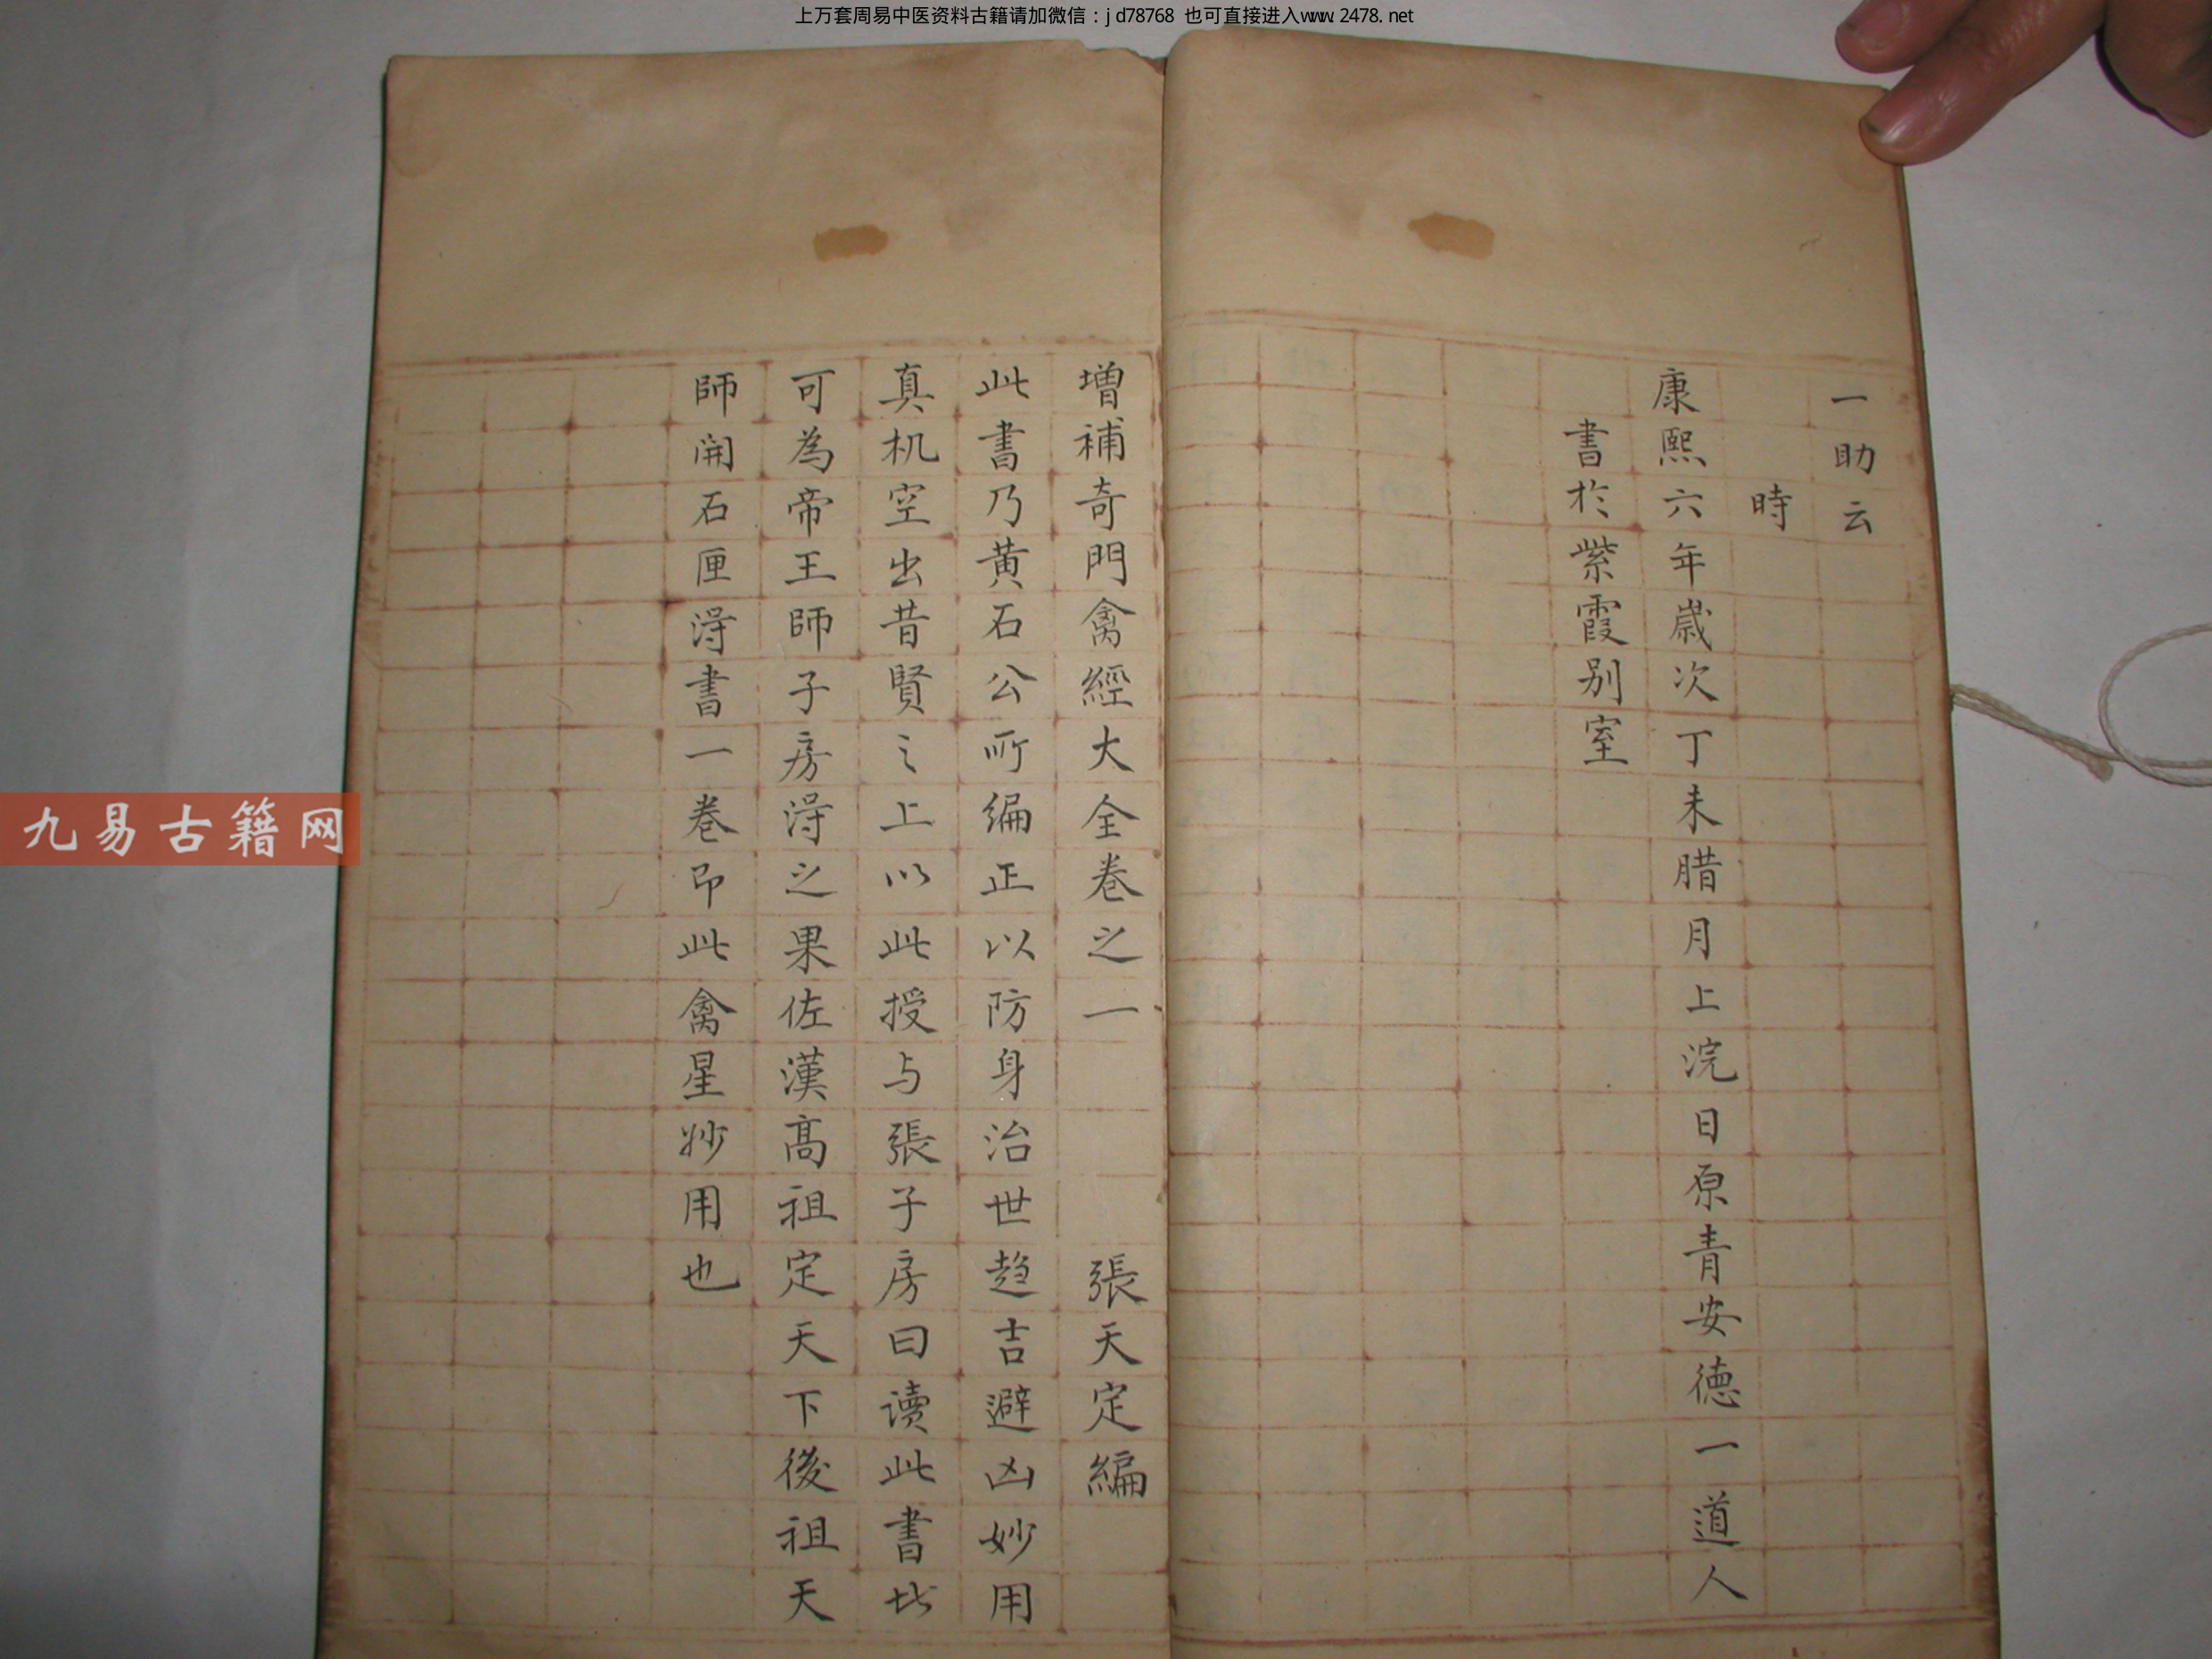 上万套周易中医资料古籍请加微信：jd78768 也可直接进入www.2478.net
一助云
時
康熙六年歲次丁未腊月上浣日原青安德一道人
書於紫霞别室
增補奇門禽經大全卷之一 張天定編
此書乃黄石公所編正以防身治世趋吉避凶妙用
真机空出昔賢之上以此授与張子房曰读此書此
可為帝王師子房淂之果佐漢高祖定天下後祖天
師開石匣淂書一卷即此禽星妙用也
九易古籍网